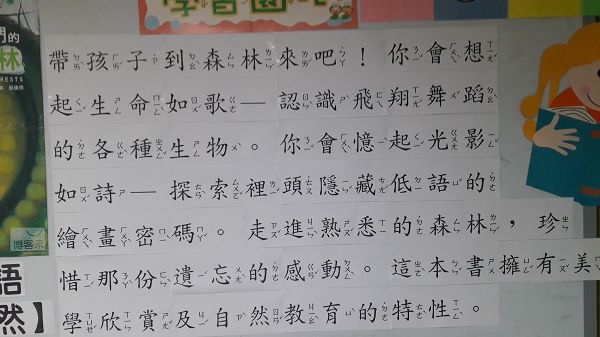 學習園地
門的
林
RESTS
帶孩子到森林來吧！你會想
起生命如歌—認識飛翔舞蹈
的各種生物。你會憶起光影
如詩—探索裡頭隱藏低語的
繪畫密碼。走進熟悉的森林，珍
惜那份遺忘的感動。這本書擁有美
學欣賞及自然教育的特性。
博客來
語
然】